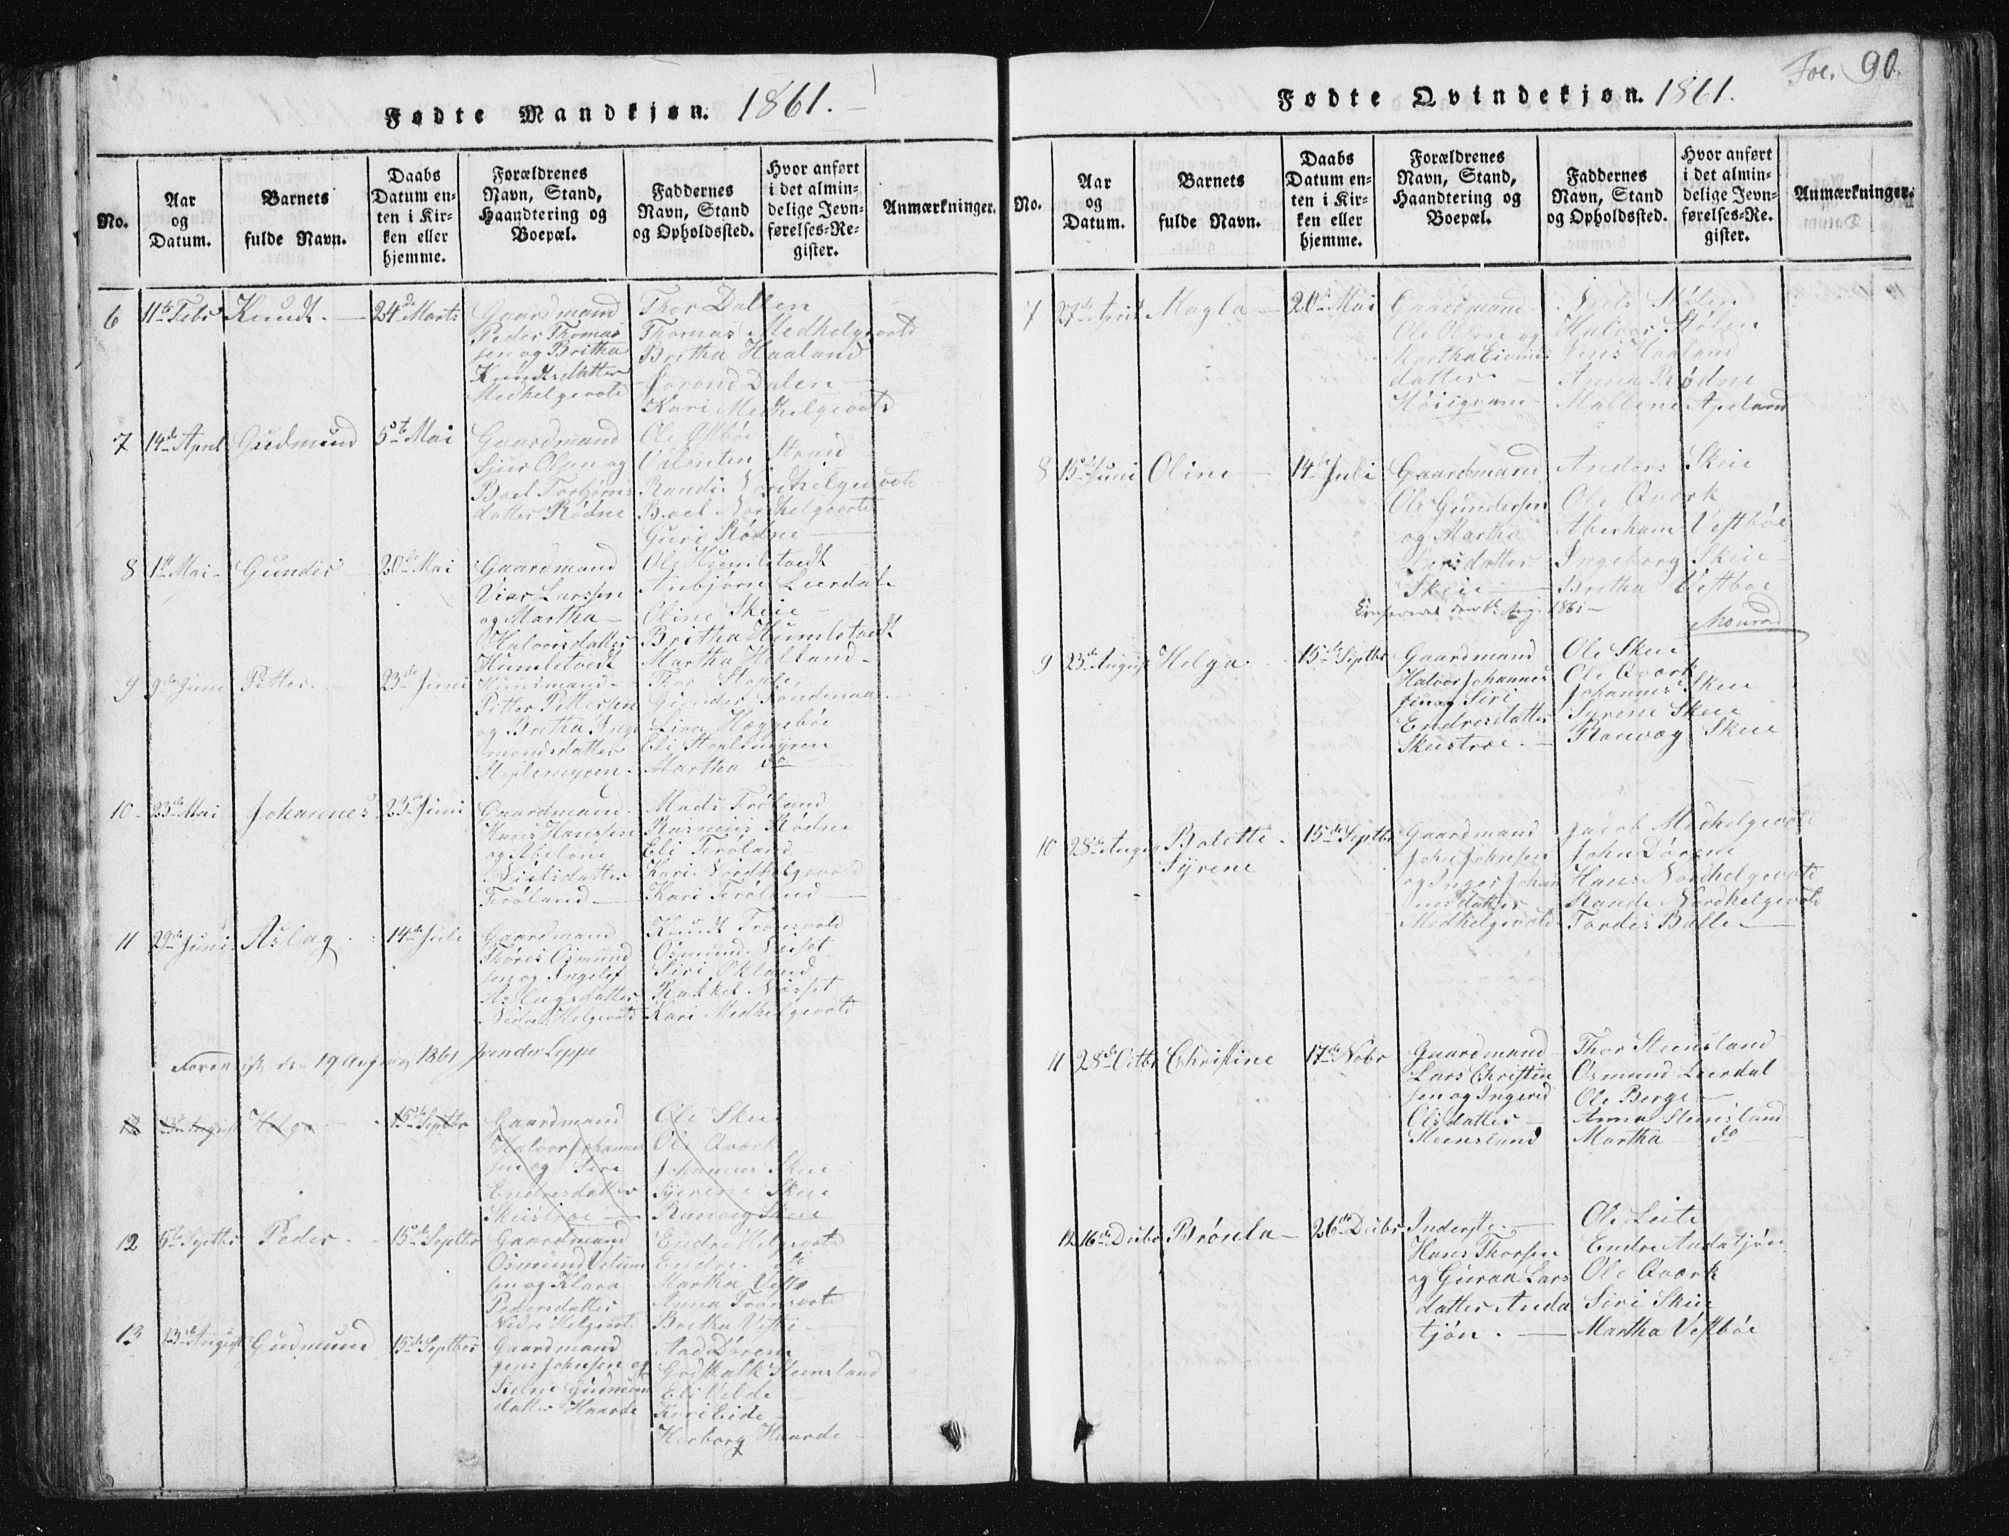 Fødte Mandkjøn. 1861.
No.
Aar og Datum.
Barnets fulde Navn.
Daabs Datum enten i Kirken eller hjemme.
Forældrenes Navn, Stand, Haandtering og Boepæl.
Faddernes Navn, Stand og Opholdssted.
Hvor anført i det almindelige Jevnførelses-Register.
Anmærkninger.
6 11te Febr Knudt. 24de Marts
Gaardmand
Peder Thomas
sen og Britha
Knudtsdatter
Medhelgevold
Thor Dalen
Thomas Medhelgevold
Britha Haaland
Torond Dalen
Kari Medhelgevold
7 14de April Gudmund 5te Mai
Gaardmand
Sjur Olsen og
Boel Torbjørns
datter Rødne
Ole Østbøe
Valenten Strand
Randi Nordhelgevold
Boel Nordhelgevold
Guri Rødne
8 1ste Mai Gunder 20de Mai
Gaardmand
Viar Larssen
og Martha
Halvorsdatter
Humlestvedt
Ole Humlestvedt
Anbjørn Leerdal
Oline Skeie
Britha Humlestvedt
Martha Helland
9 9de Juni Pitter. 23de Juni
Huusmand
Pitter Pittersen
og Britha Inge
mondsdatter
Stoplemyren.
Thor Stople
Gunder Søndenaa
Liva Heggebøe
Eli Stoplemyren
Martha do
10 23de Mai Johannes 23de Juni
Gaardmand
Hans Hanssen
og Abelone
Nielsdatter
Frøland
Mads Frøland
Rasmus Rødne
Eli Frøland
Kari Nordhelgevold
Kari Frøland
11 29de Juni Aslag 14de Juli
Gaardmand
Thøres Osmund
sen og Ingelef
Aslagsdatter
Nedre Helgevold
Knudt Tronsvold
Osmund Næsset
Siri Økland
Rakkel Næsset
Kari Medhelgevold
den 19 August 1861
Helga 15de Septbr
Gaardmand
Halvor Johannes
sen og Siri
Endresdatter
Skeistroe
Ole Skeie
Ole Qværk
Johannes Skeie
Syrene Skeie
Ranveg Skeie
12 5te Septbr Peder 15de Septbr
Gaardmand
Osmund Velum
sen og Klara
Pedersdatter
Nedre Helgevold
Endre Helgevold
Endre do
Martha Vestbø
Anna Tronsvold
Britha Vestbø
13 23de August Gudmund 15de Septber
Gaardmand
Jens Johnsen og
Sielne Gudmun
datter Haarde
Aad Dørem
Godskalk Steensland
Eli Velde
Kari Eide
Herborg Haarde
Fol. 90.
Fødte Qvindekjøn. 1861.
No.
Aar og Datum.
Barnets fulde Navn.
Daabs Datum enten i Kirken eller hjemme.
Forældrenes Navn, Stand, Haandtering og Boepæl.
Faddernes Navn, Stand og Opholdssted.
Hvor anført i det almindelige Jevnførelses-Register.
Anmærkninger.
7 27de April Magla 20de Mai
Gaardmand
Ole Olsen og
Martha Eivinds
datter
Høisqvam
Niels Stølen
Halvor Stølen
Jens Haaland
Anna Rødne
Mallene Apeland
8 15de Juni Oline 14de Juli
Gaardmand
Ole Gundersen
og Martha
Skeie
Anders Skeie
Ole Qværk
Aberham Vestbøe
Ingeborg Skeie
Britha Vestbøe
Aug. 1861
9 23de August Helga 15de Septbr
Gaardmand
Halvor Johannes
sen og Siri
Endresdatter
Skeistroe.
Ole Skeie
Ole Qværk
Johannes Skeie
Syrene Skeie
Ranvæg Skeie
10 28de August Bolette Syrene 15de Septbr
Gaardmand
John Johnsen
og Inger Johan
nesdatter
Medhelgevold
Jacob Medhelgevold
John Dørene
Hans Nordhelgevold
Rande Nordhelgevold
Tordis Balle
11 28de Octbr Christine 17de Nobr
Gaardmand
Lars Christin
sen og Ingerid
Olsdatter
Steensland
Thor Steensland
Osmund Leerdal
Ole Berge
Anna Steensland
Martha do
12 16de Decbr Brønla 26de Decbr
Inderste
Hans Thorsen
og Guraa Lars
datter Anda
tjøn.
Ole Leite
Endre Andatjøn
Ole Qværk
Siri Skeie
Martha Vestbøe